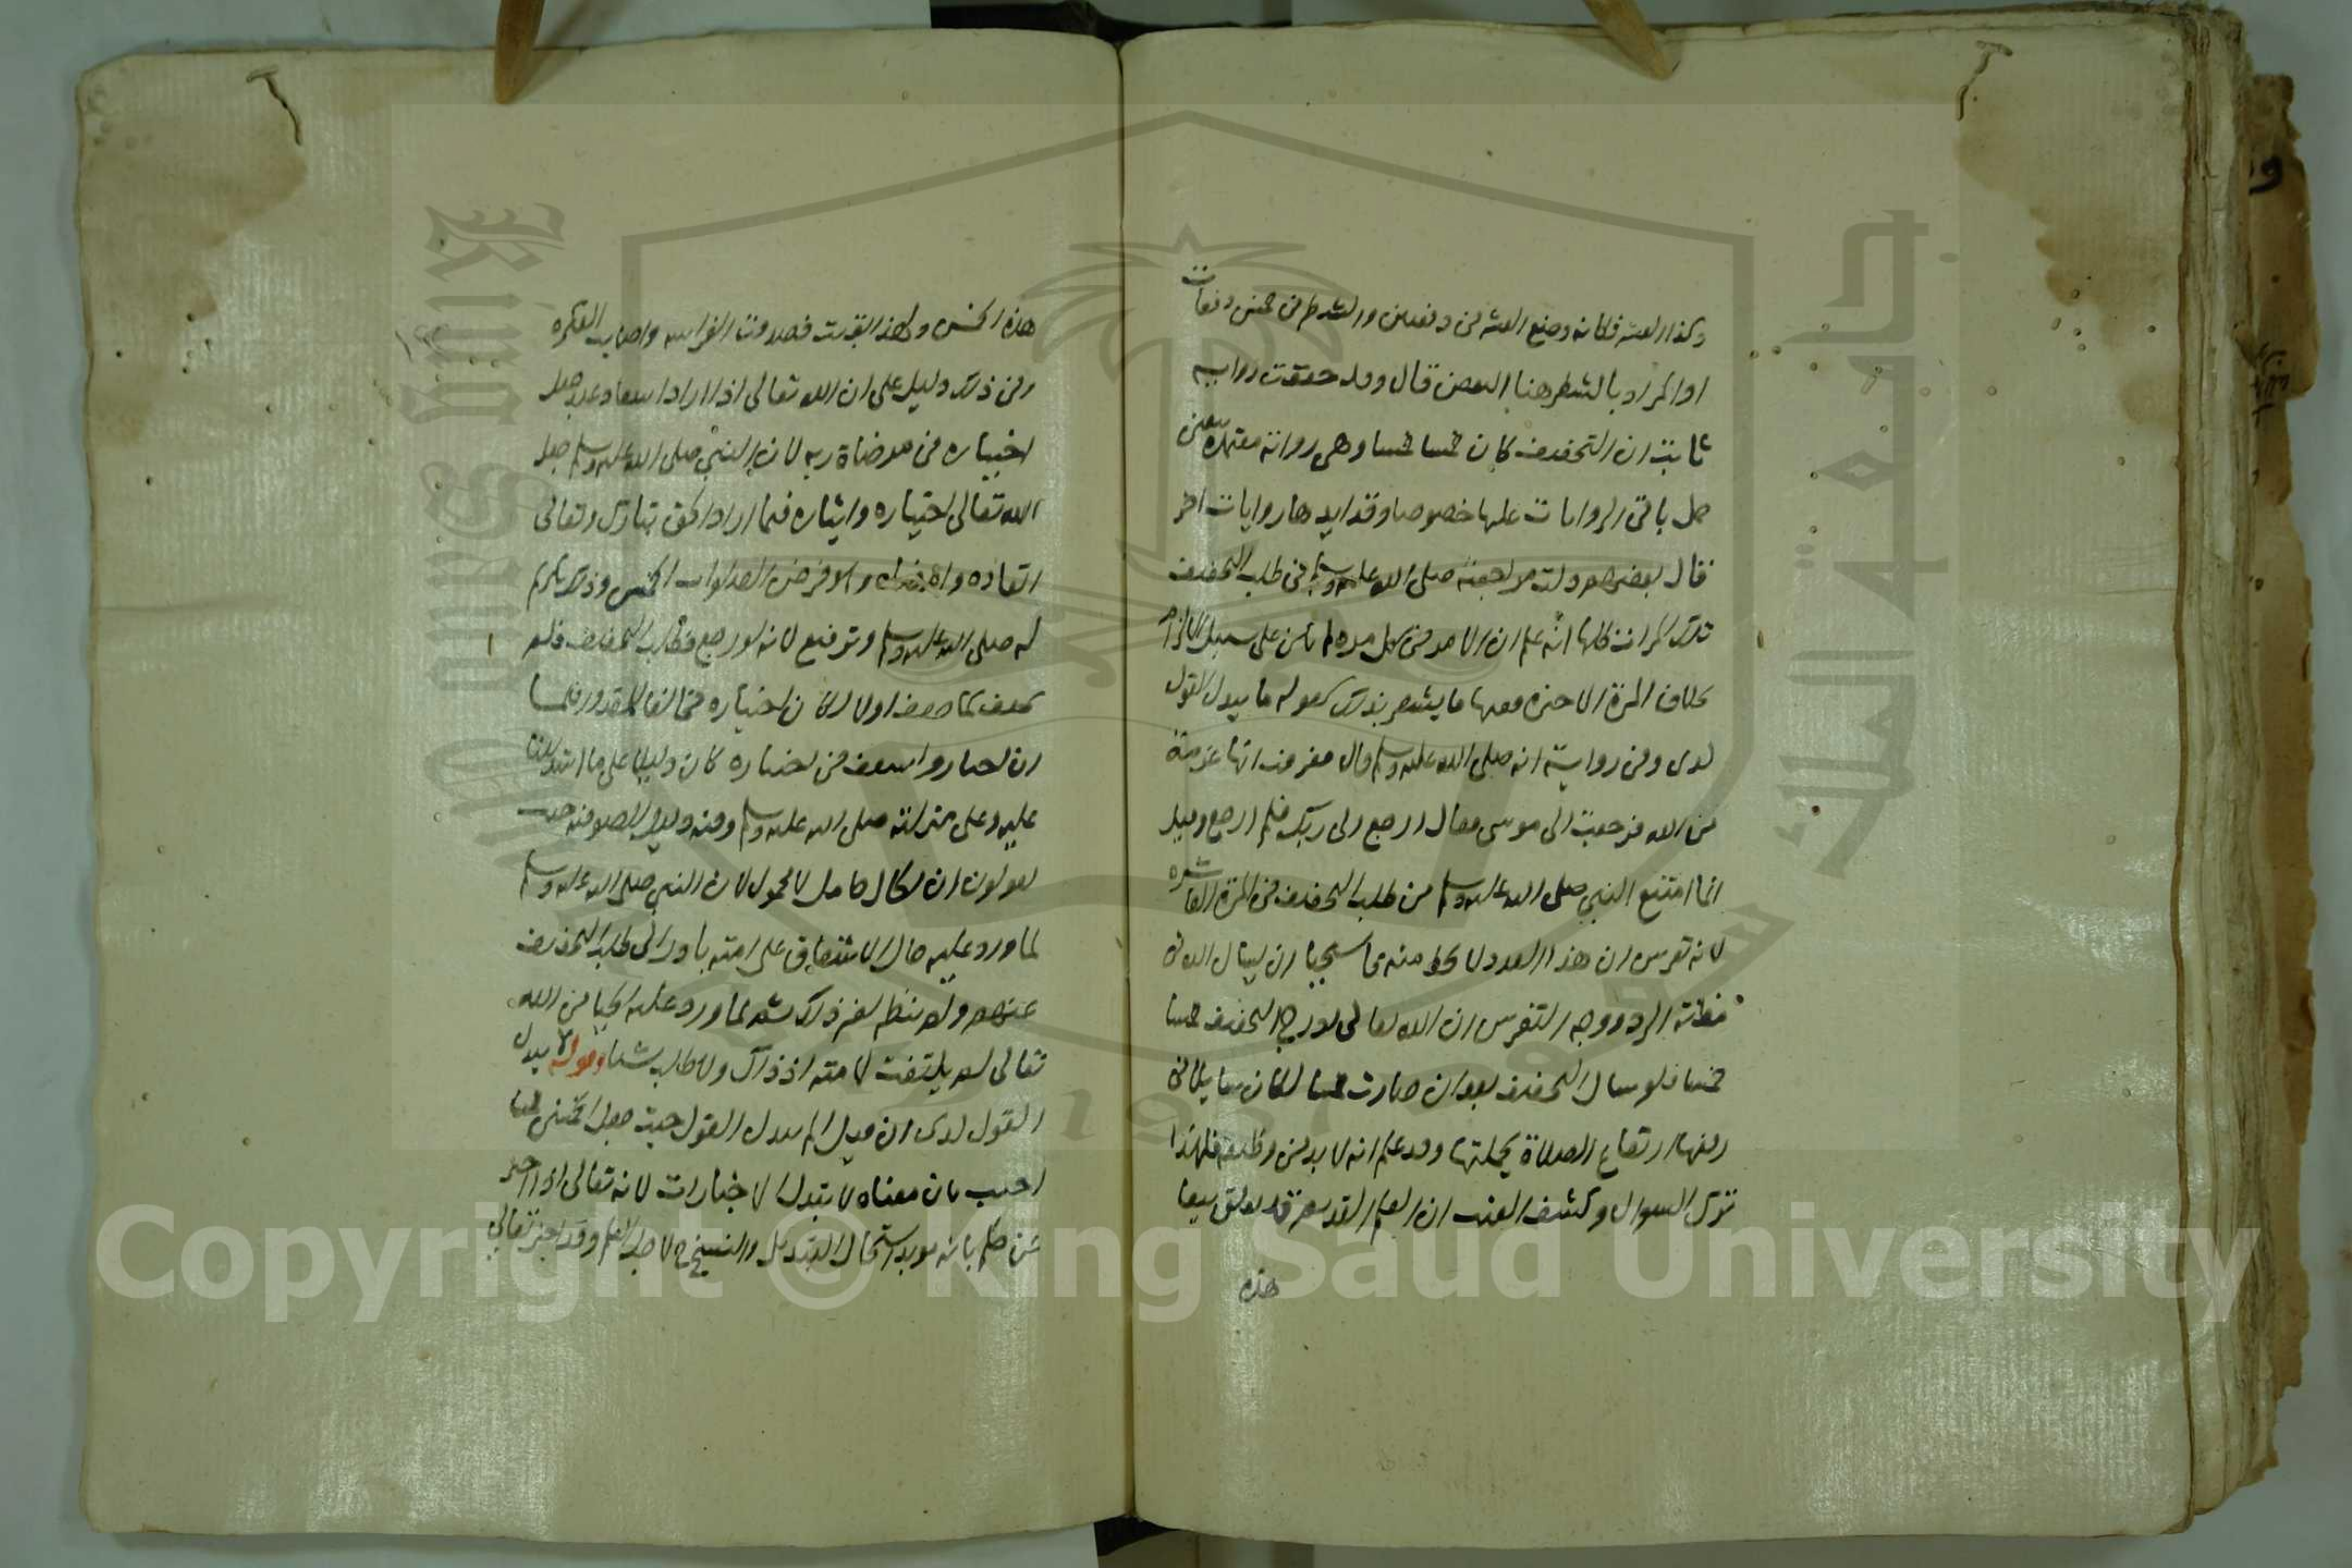 وكذا العشر فكانه وضع العشر في دفعتين والشطر في خمس دفعات
او المراد بالشطر هنا البعض قال وقد حققت رواية
ثابت ان التخفيف كان خمسا خمسا وهي رواية معتمدة يتعين
حمل باقي الروايات عليها خصوصا وقد ايدها روايات اخر
قال بعضهم ولت مراجعته صلى الله عليه وسلم في طلب التخفيف
تلك المرات كلها انه علم ان الامر في كل مرة لم يكن على سبيل الالزام
بخلاف المرة الاخيرة ففيها ما يشعر بذلك كقوله ما يبدل القول
لدى وفي رواية انه صلى الله عليه وسلم قال فعرفت انها عزيمة
من الله فرجعت الى موسى فقال ارجع الى ربك فلم ارجع وقيل
انما امتنع النبي صلى الله عليه وسلم من طلب التخفيف في المرة العاشرة
لانه تفرس ان هذا العدد لا يحط منه فاستحيا ان يسال الله في
مظنة الرد ووجه التفرس ان الله تعالى لدرج التخفيف خمسا
خمسا فلو سال التخفيف بعد ان صارت خمسا لكان سايلا في
رفعها ارتفاع الصلاة بجملتها وقد علم انه لا بد من وظيفة فلهذا
ترك السوال وكشف الغيب ان العلم القديم قد تعلق ببقا
هذه
هذه الخمس ولهذا بقيت فصدقت الفراسه واصابت الفكره
وفي ذلك دليل على ان الله تعالى اذا اراد اسعاد عبد جعل
اختياره في مرضاة ربه لان النبي صلى الله عليه وسلم جعل
الله تعالى اختياره وايثاره فيما اراد الحق تبارك وتعالى
انفاذه وامضاه والا فرض الصلوات الخمس وذلك تكريم
له صلى الله عليه وسلم وترفيع لانه لو رجع فطلب التخفيف فلم
يخفف كما خفف اولا لكان اختياره مخالفا للمقدور فلما
ان اختار واسعف في اختياره كان دليلا على ما استدللنا
عليه وعلى منزلته صلى الله عليه وسلم وفيه دليل للصوفية حيث
يقولون ان الحال حامل لا محمول لان النبي صلى الله عليه وسلم
لما ورد عليه حال الاشفاق على امته بادر الى طلب التخفيف
عنهم ولم ينظر لغير ذلك ثم لما ورد عليه الحيا من الله
تعالى لم يلتفت لامته اذ ذاك ولا طلب شيا وقوله لا يبدل
القول لدى ان قيل الم يبدل القول حيث جعل الخمسين خمسا
اجيب بان معناه لا يتبدل الاخبارات لانه تعالى اذا اخبر
عن حكم بانه موبد استحال التبديل والنسخ لاجل العلم وقد اخبر تعالى